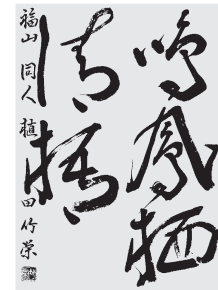 鳴鳳栖
清梧
福山 同人 植田竹栄